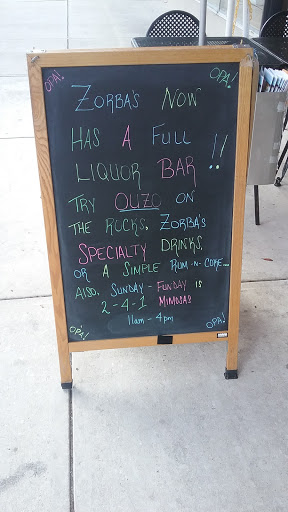 OPA! OPA!
ZORBA'S NOW
HAS A FULL
LIQUOR BAR !!
TRY OUZO ON
THE ROCKS, ZORBA'S
SPECIALTY DRINKS,
OR A SIMPLE RUM-N-COKE...
ALSO, SUNDAY-FUNDAY IS
2-4-1 MIMOSAS
11am-4pm
OPA! OPA!